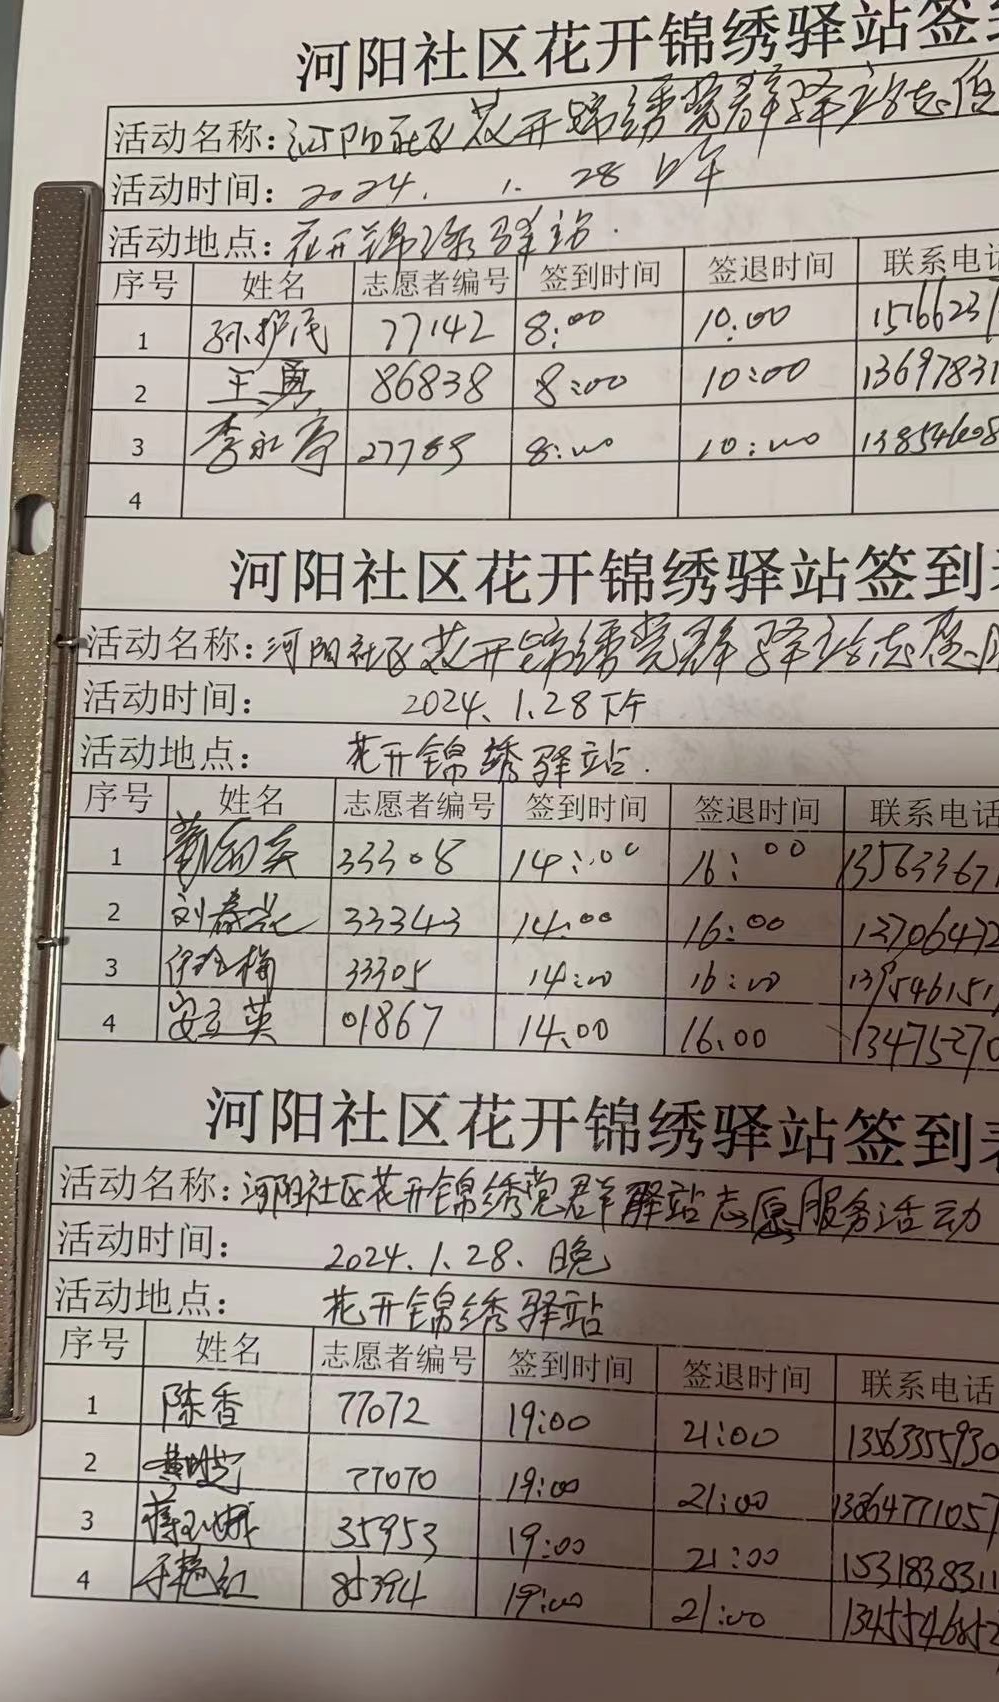 河阳社区花开锦绣驿站签
活动名称:河阳社区花开锦绣党群驿站志
活动时间: 2024. 1. 28 上午
活动地点: 花开锦绣驿站.
序号 姓名 志愿者编号 签到时间 签退时间 联系电话
1 孙护民 77142 8:00 10:00 1516623
2 王勇 86838 8:00 10:00 13697831
3 李永亭 27785 8:00 10:00
4
河阳社区花开锦绣驿站签到
活动名称:河阳社区花开锦绣党群驿站志愿
活动时间: 2024.1.28下午
活动地点: 花开锦绣驿站.
序号 姓名 志愿者编号 签到时间 签退时间 联系电话
1 33308 14:00 16:00 13563367
2 刘春 33343 14:00 16:00 13706472
3 33305 14:00 16:00 139546151
4 安立英 01867 14.00 16.00 134715270
河阳社区花开锦绣驿站签到表
活动名称:河阳社区花开锦绣党群驿站志愿服务活动
活动时间: 2024.1.28.晚
活动地点: 花开锦绣驿站
序号 姓名 志愿者编号 签到时间 签退时间 联系电话
1 陈香 77072 19:00 21:00 13563355930
2 77070 19:00 21:00 13864771057
3 35953 19:00 21:00 1531838311
4 于艳红 85394 19:00 21:00